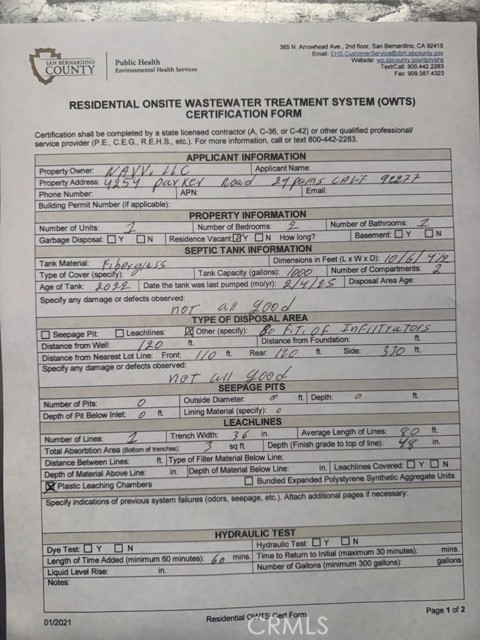 385 N. Arrowhead Ave., 2nd floor, San Bernardino, CA 92415
Email: EHS.CustomerService@dph.sbcounty.gov
Website: wp.sbcounty.gov/dph/ehs
Text/Call: 800.442.2283
Fax: 909.387.4323
SAN BERNARDINO COUNTY
Public Health
Environmental Health Services
RESIDENTIAL ONSITE WASTEWATER TREATMENT SYSTEM (OWTS)
CERTIFICATION FORM
Certification shall be completed by a state licensed contractor (A, C-36, or C-42) or other qualified professional/
service provider (P.E., C.E.G., R.E.H.S., etc.). For more information, call or text 800-442-2283.
APPLICANT INFORMATION
Property Owner: NAVV, LLC Applicant Name:
Property Address: 4254 Parker Road 29 palms CALF 92277
Phone Number: APN: Email:
Building Permit Number (if applicable):
PROPERTY INFORMATION
Number of Units: 1 Number of Bedrooms: 2 Number of Bathrooms: 2
Garbage Disposal: ☐ Y ☐ N Residence Vacant: ☑ Y ☐ N How long? Basement: ☐ Y ☐ N
SEPTIC TANK INFORMATION
Tank Material: Fiberglass Dimensions in Feet (L x W x D): 10/6/4/9
Type of Cover (specify): Tank Capacity (gallons): 1000 Number of Compartments: 2
Age of Tank: 2022 Date the tank was last pumped (mo/yr): 2/4/25 Disposal Area Age:
Specify any damages or defects observed:
not all good
TYPE OF DISPOSAL AREA
☐ Seepage Pit: ☐ Leachlines: ☒ Other (specify): 80 F.T. OF Infiltrators
Distance from Well: 120 ft. Distance from Foundation: ft.
Distance from Nearest Lot Line: Front: 110 ft. Rear: 120 ft. Side: 330 ft.
Specify any damage or defects observed:
not all good
SEEPAGE PITS
Number of Pits: 0 Outside Diameter: 0 ft. Depth: 0 ft.
Depth of Pit Below Inlet: 0 ft. Lining Material (specify): 0
LEACHLINES
Number of Lines: 1 Trench Width: 36 in. Average Length of Lines: 80 ft.
Total Absorbtion Area (Bottom of trenches): 3 sq ft. Depth (Finish grade to top of line): 48 in.
Distance Between Lines: ft. Type of Filter Material Below Line:
Depth of Material Above Line: in. Depth of Material Below Line: in. Leachlines Covered: ☐ Y ☐ N
☒ Plastic Leaching Chambers ☐ Bundled Expanded Polystyrene Synthetic Aggregate Units
Specify indications of previous system failures (odors, seepage, etc.). Attach additional pages if necessary:
HYDRAULIC TEST
Dye Test: ☐ Y ☐ N Hydraulic Test: ☐ Y ☐ N
Length of Time Added (minimum 60 minutes): 60 mins. Time to Return to Initial (maximum 30 minutes): mins.
Liquid Level Rise: in. Number of Gallons (minimum 300 gallons): gallons
Notes:
Page 1 of 2
01/2021 Residential OWTS Cert Form
CRMLS